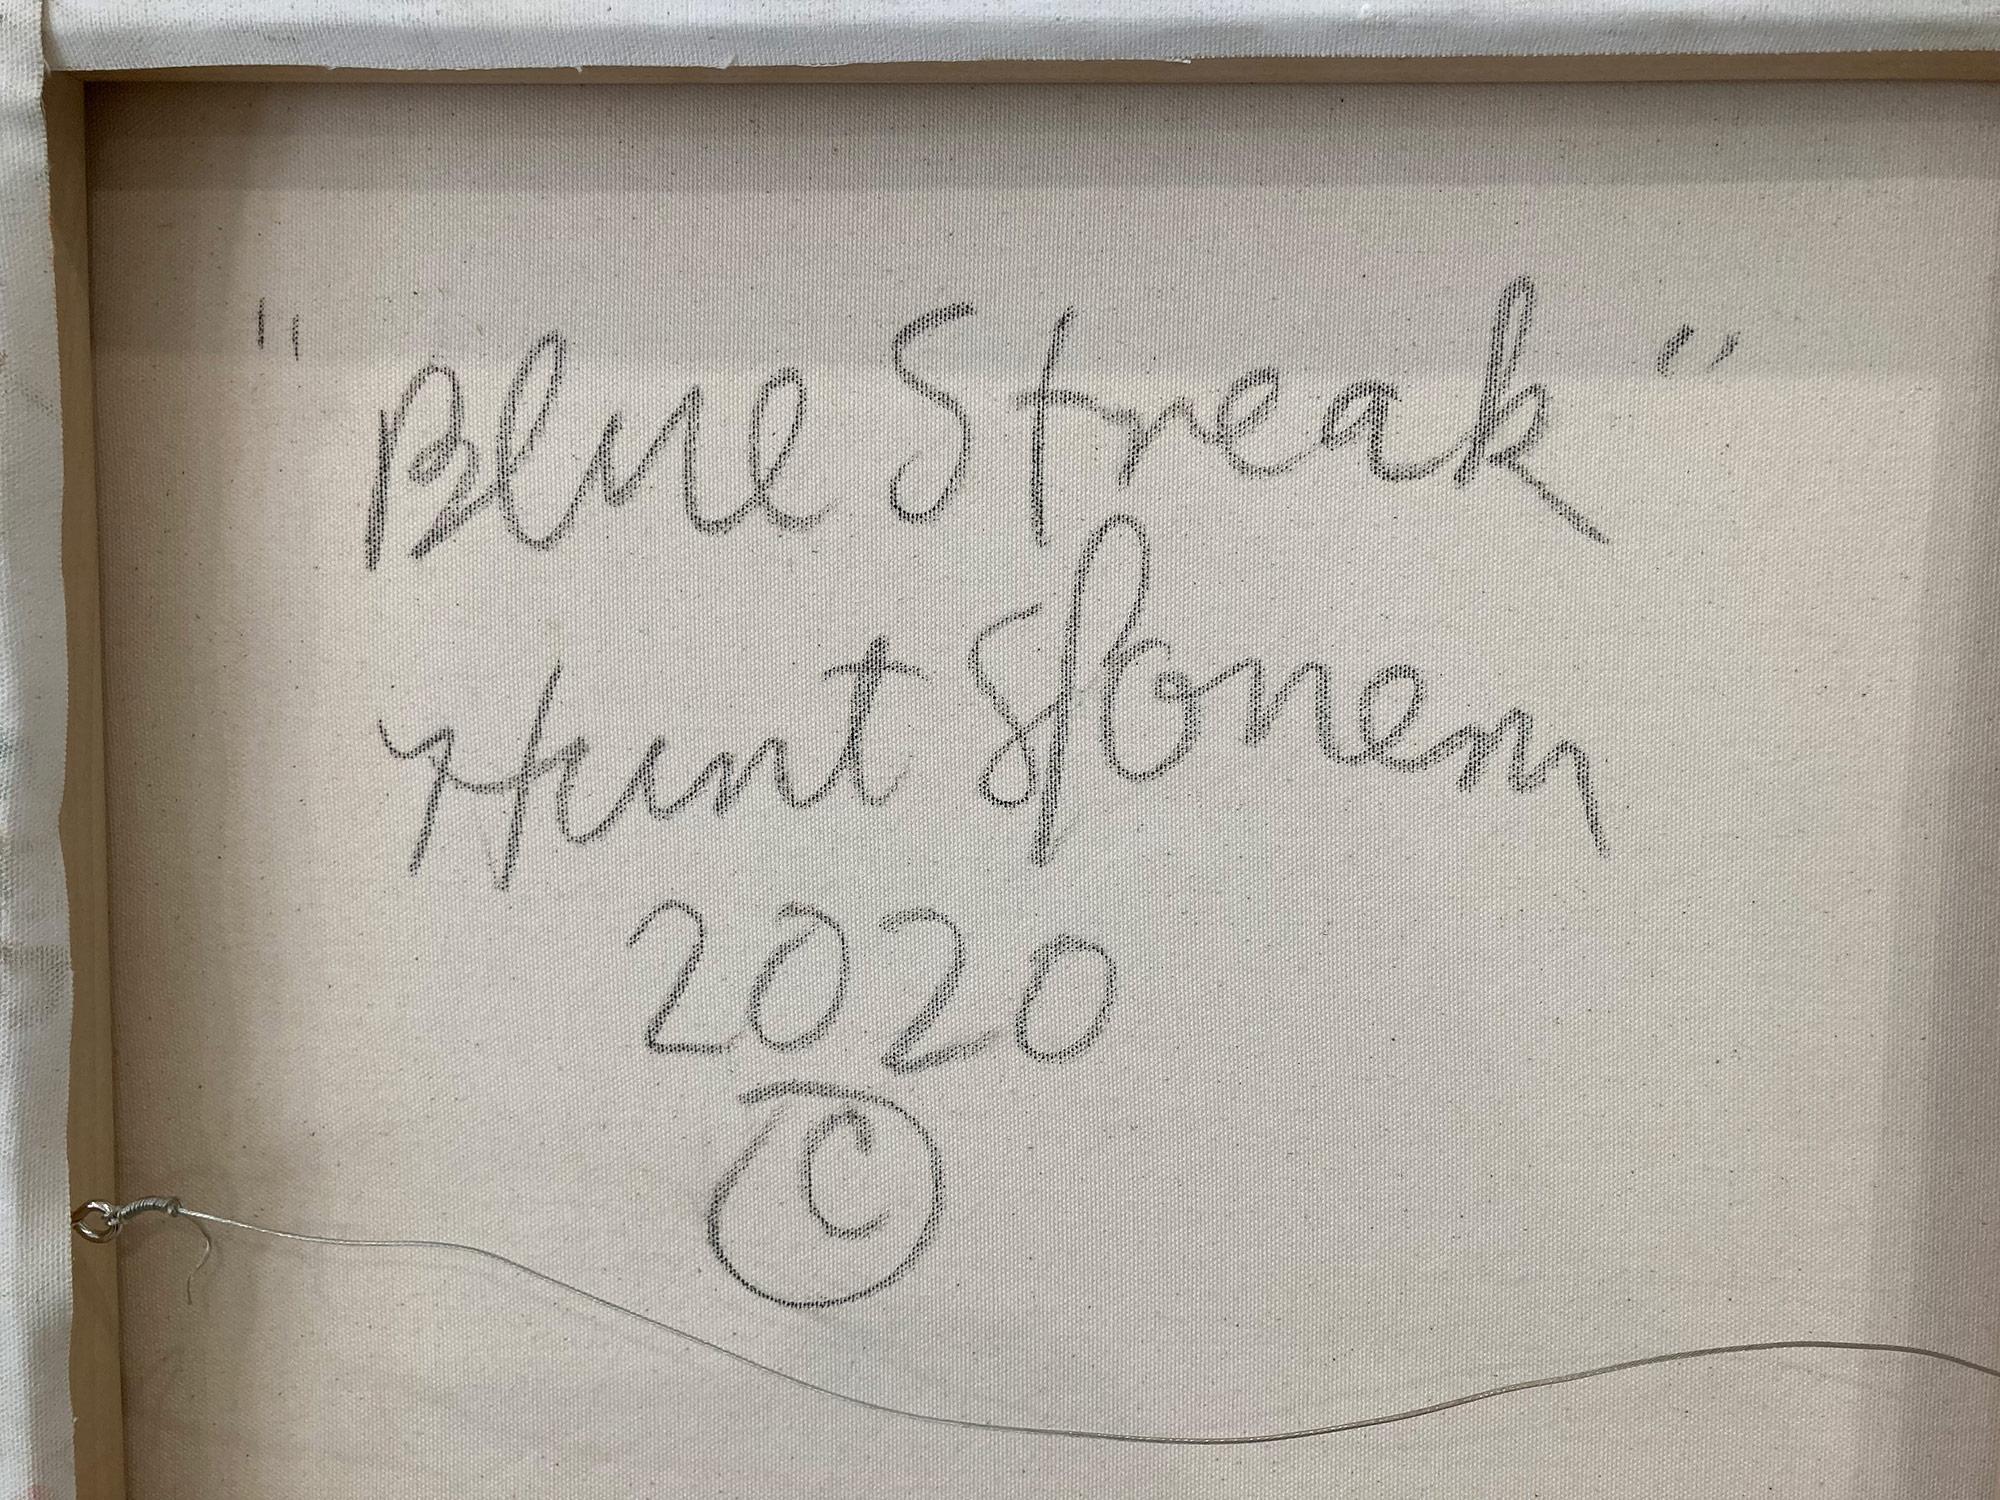 "Blue Streak"
Hunt Slonem
2020
©